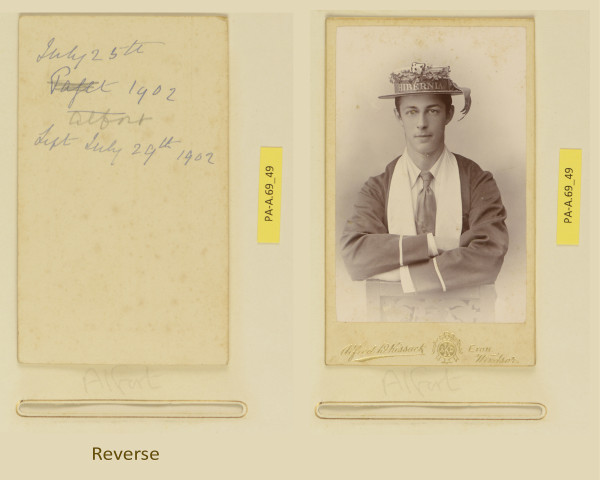 July 25th
1902
Alfort
Left July 29th 1902
Alfort
PA-A.69_49
Reverse
HIBERNIA
Eton
Windsor.
Alfort
PA-A.69_49